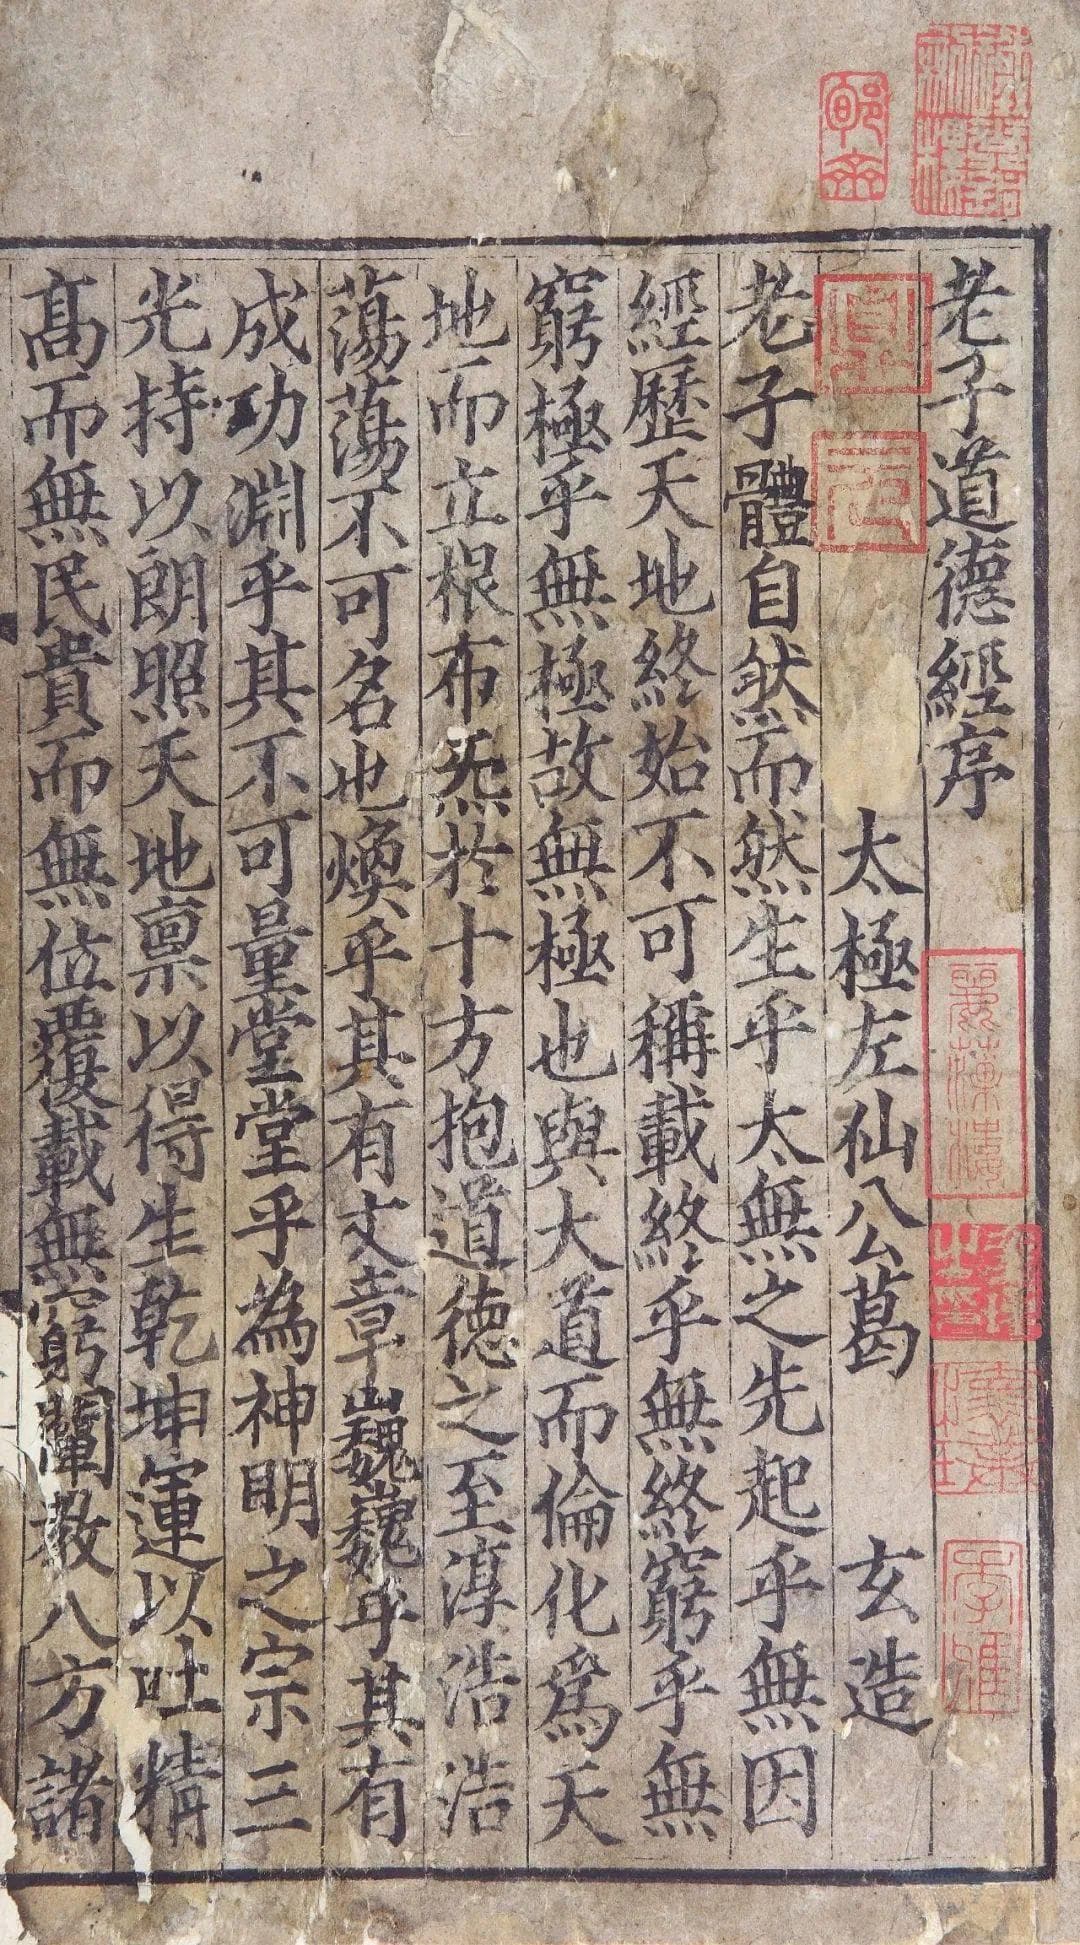 老子道德經序
太極左仙公葛玄造
老子體自然而然生乎太無之先起乎無因
經歷天地終始不可稱載終乎無終窮乎無
窮極乎無極故無極也與大道而倫化爲天
地而立根布炁於十方抱道德之至淳浩浩
蕩蕩不可名也煥乎其有文章巍巍乎其有
成功淵乎其不可量堂堂乎為神明之宗三
光持以朗照天地稟以得生乾坤運以吐精
髙而無民貴而無位覆載無窮闡教八方諸